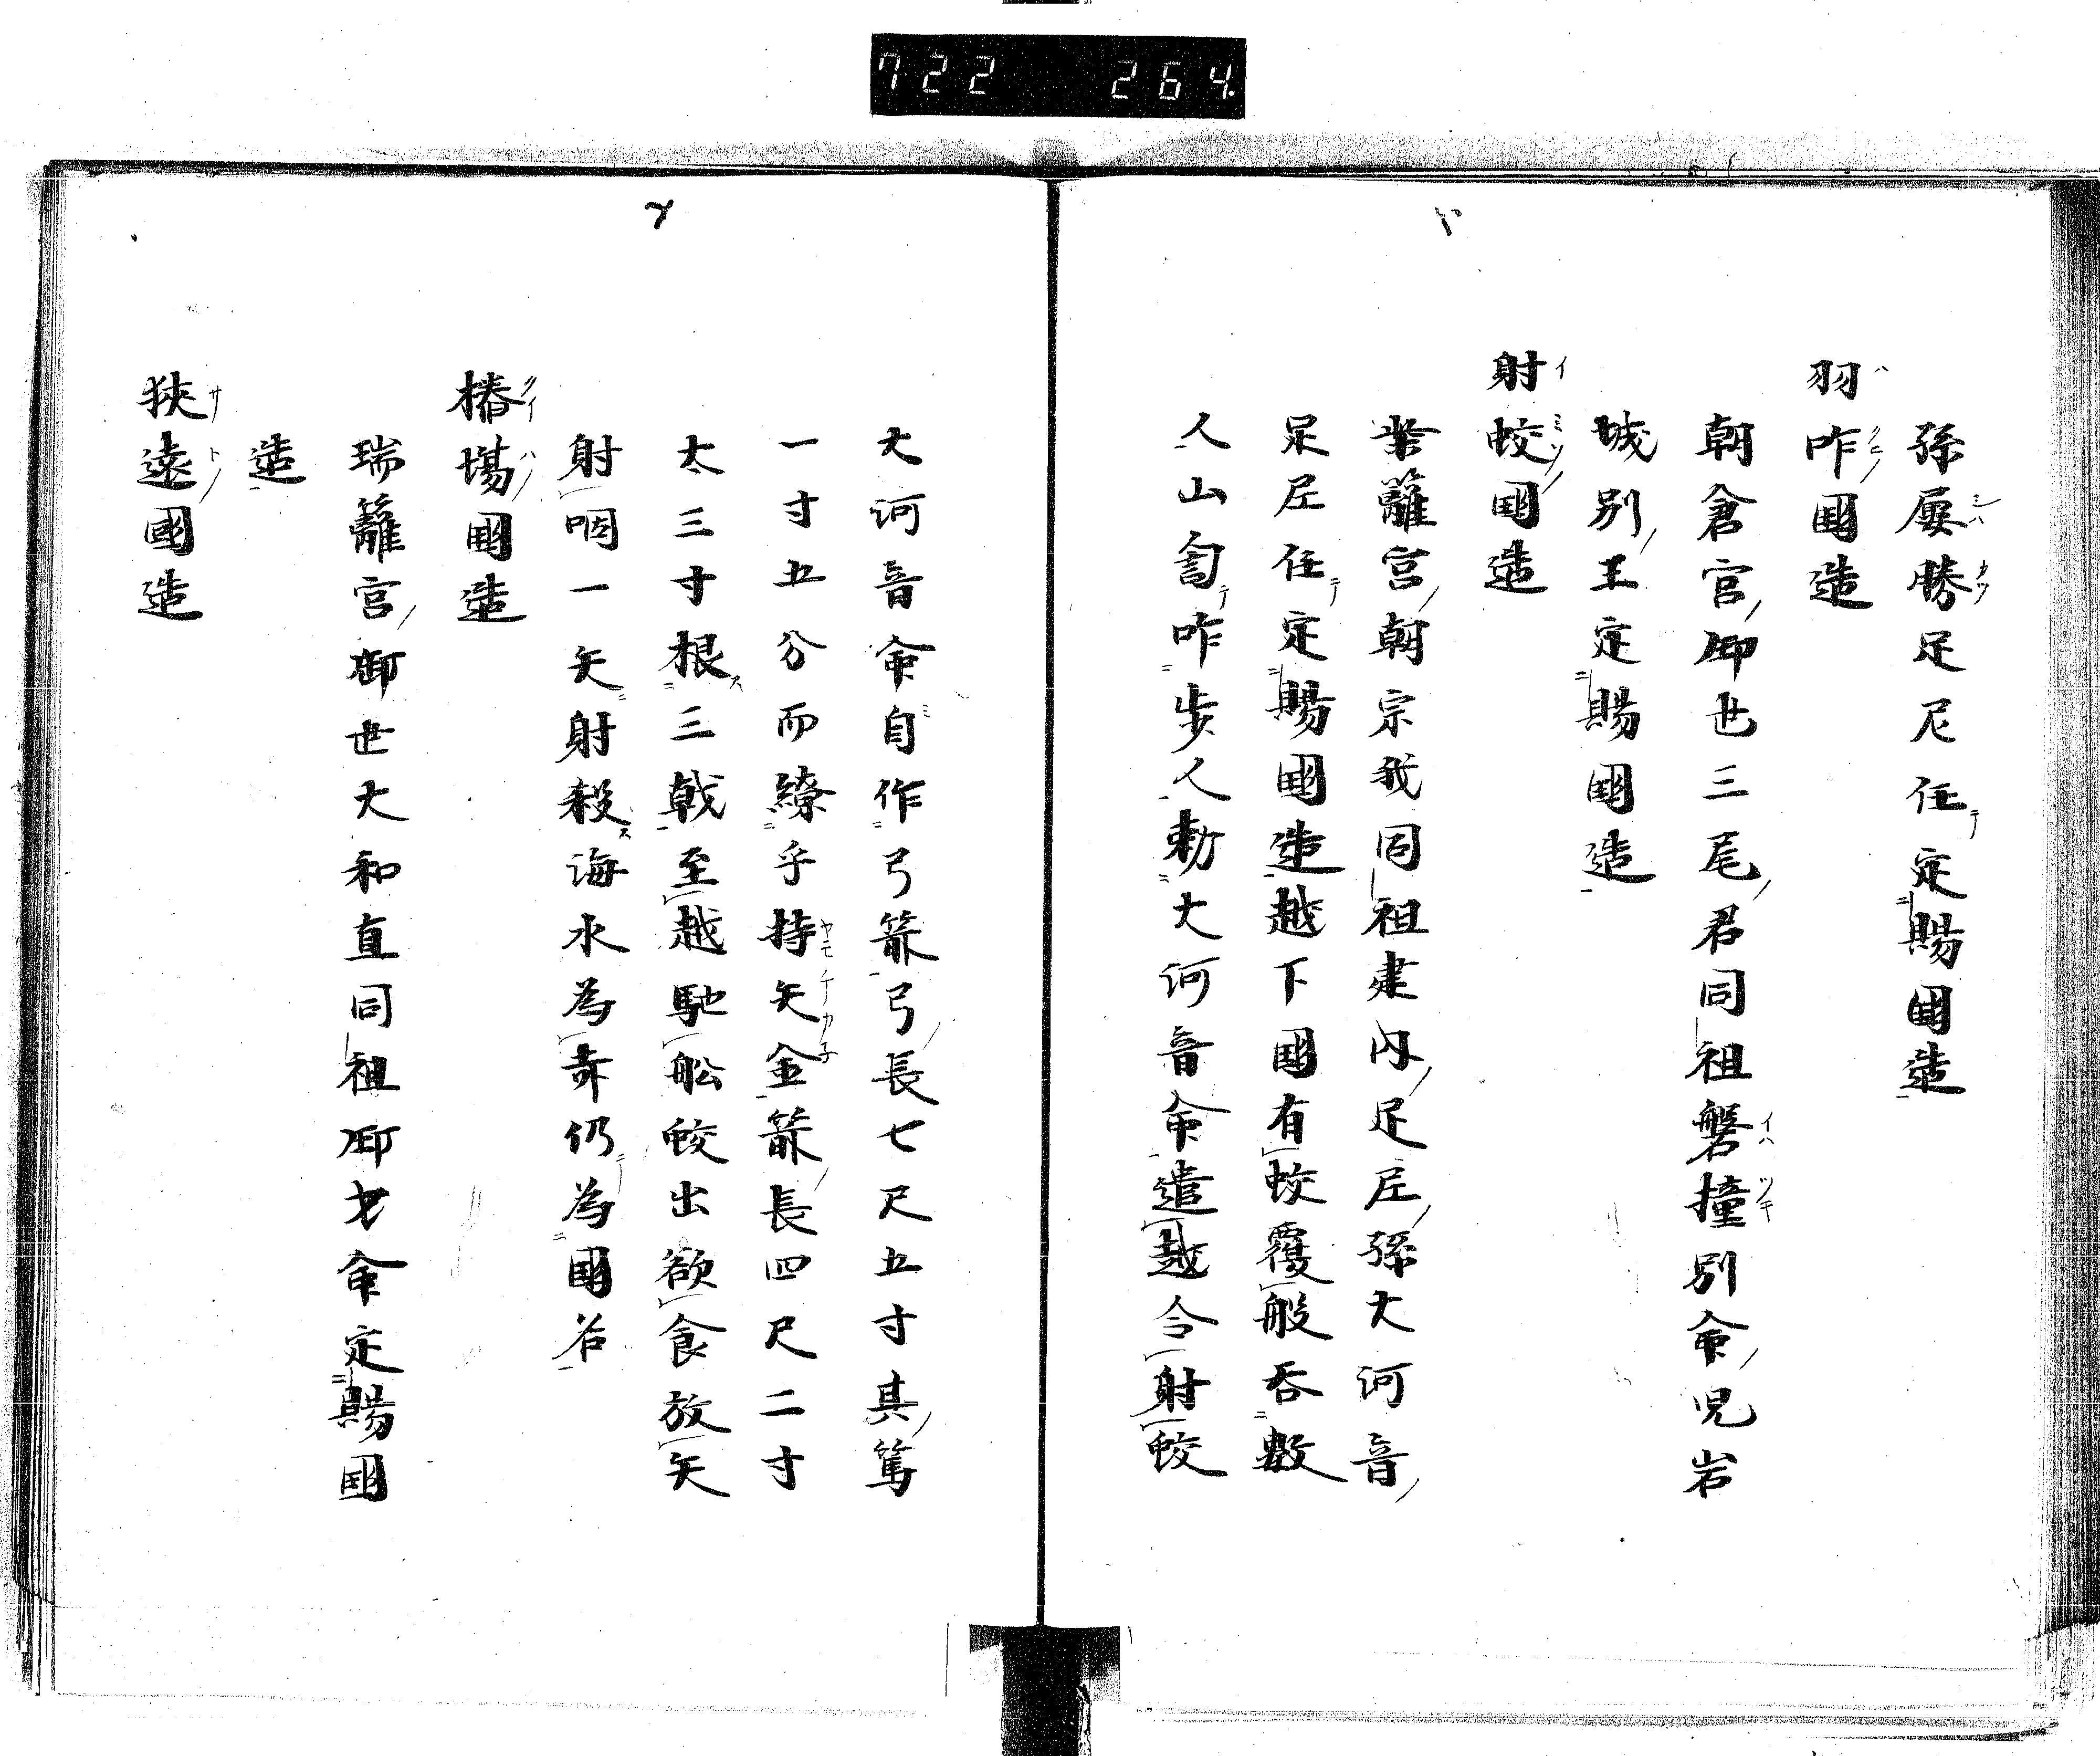 722 264
孫屢勝足尼任定賜國造
羽咋國造
朝倉宮御世三尾君同祖磐撞別命児岩
城別王定賜國造
射蛟國造
紫籬宮朝宗我同祖建内足尼孫大河音
足尼任定賜國造越下國有蛟覆般呑数
人山訇咋歩人勅大河音命遣越令射蛟
大河音命自作弓箭弓長七尺五寸其篤
一寸五分而繚乎持矢金箭長四尺二寸
太三寸根三戟至越馳舩蛟出欲食放矢
射咽一矢射殺海水為奇仍為國名
椿場國造
瑞籬宮御世大和直同祖御戈命定賜國
造
狭遠國造